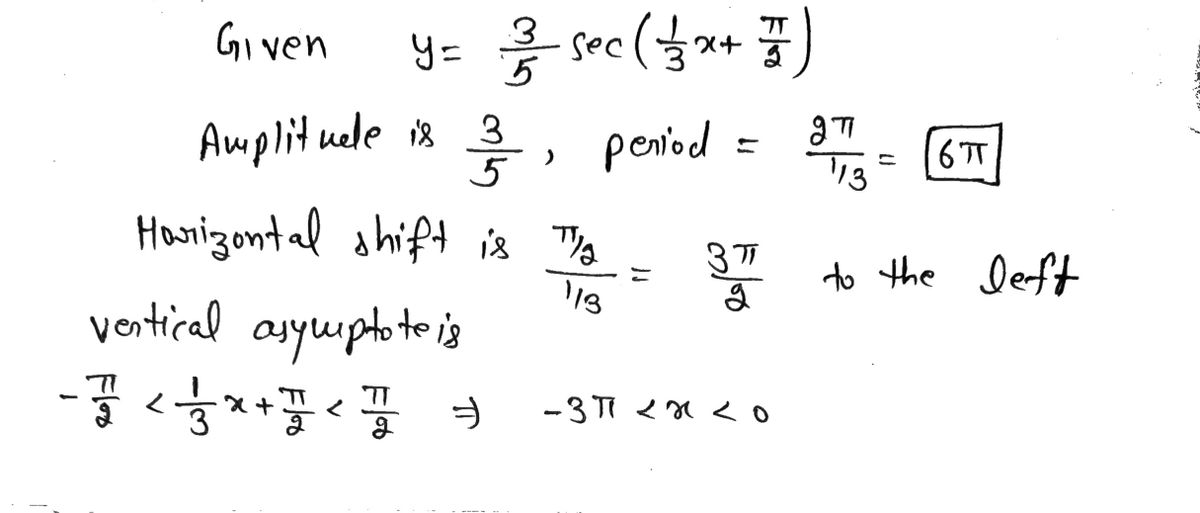 Given y = 3/5 sec(1/3 x + π/2)
Amplitude is 3/5, period = 2π/1/3 = 6π
Horizontal shift is π/2/1/3 = 3π/2 to the left
vertical asymptote is
-π/2 < 1/3 x + π/2 < π/2 ⇒ -3π < x < 0